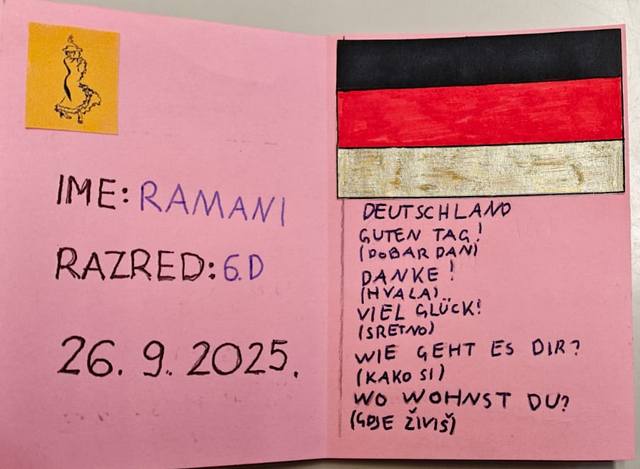 IME: RAMANI
RAZRED: 6.D
26. 9. 2025.
DEUTSCHLAND
GUTEN TAG!
(DOBAR DAN)
DANKE!
(HVALA)
VIEL GLÜCK!
(SRETNO)
WIE GEHT ES DIR?
(KAKO SI)
WO WOHNST DU?
(GDJE ŽIVIŠ)